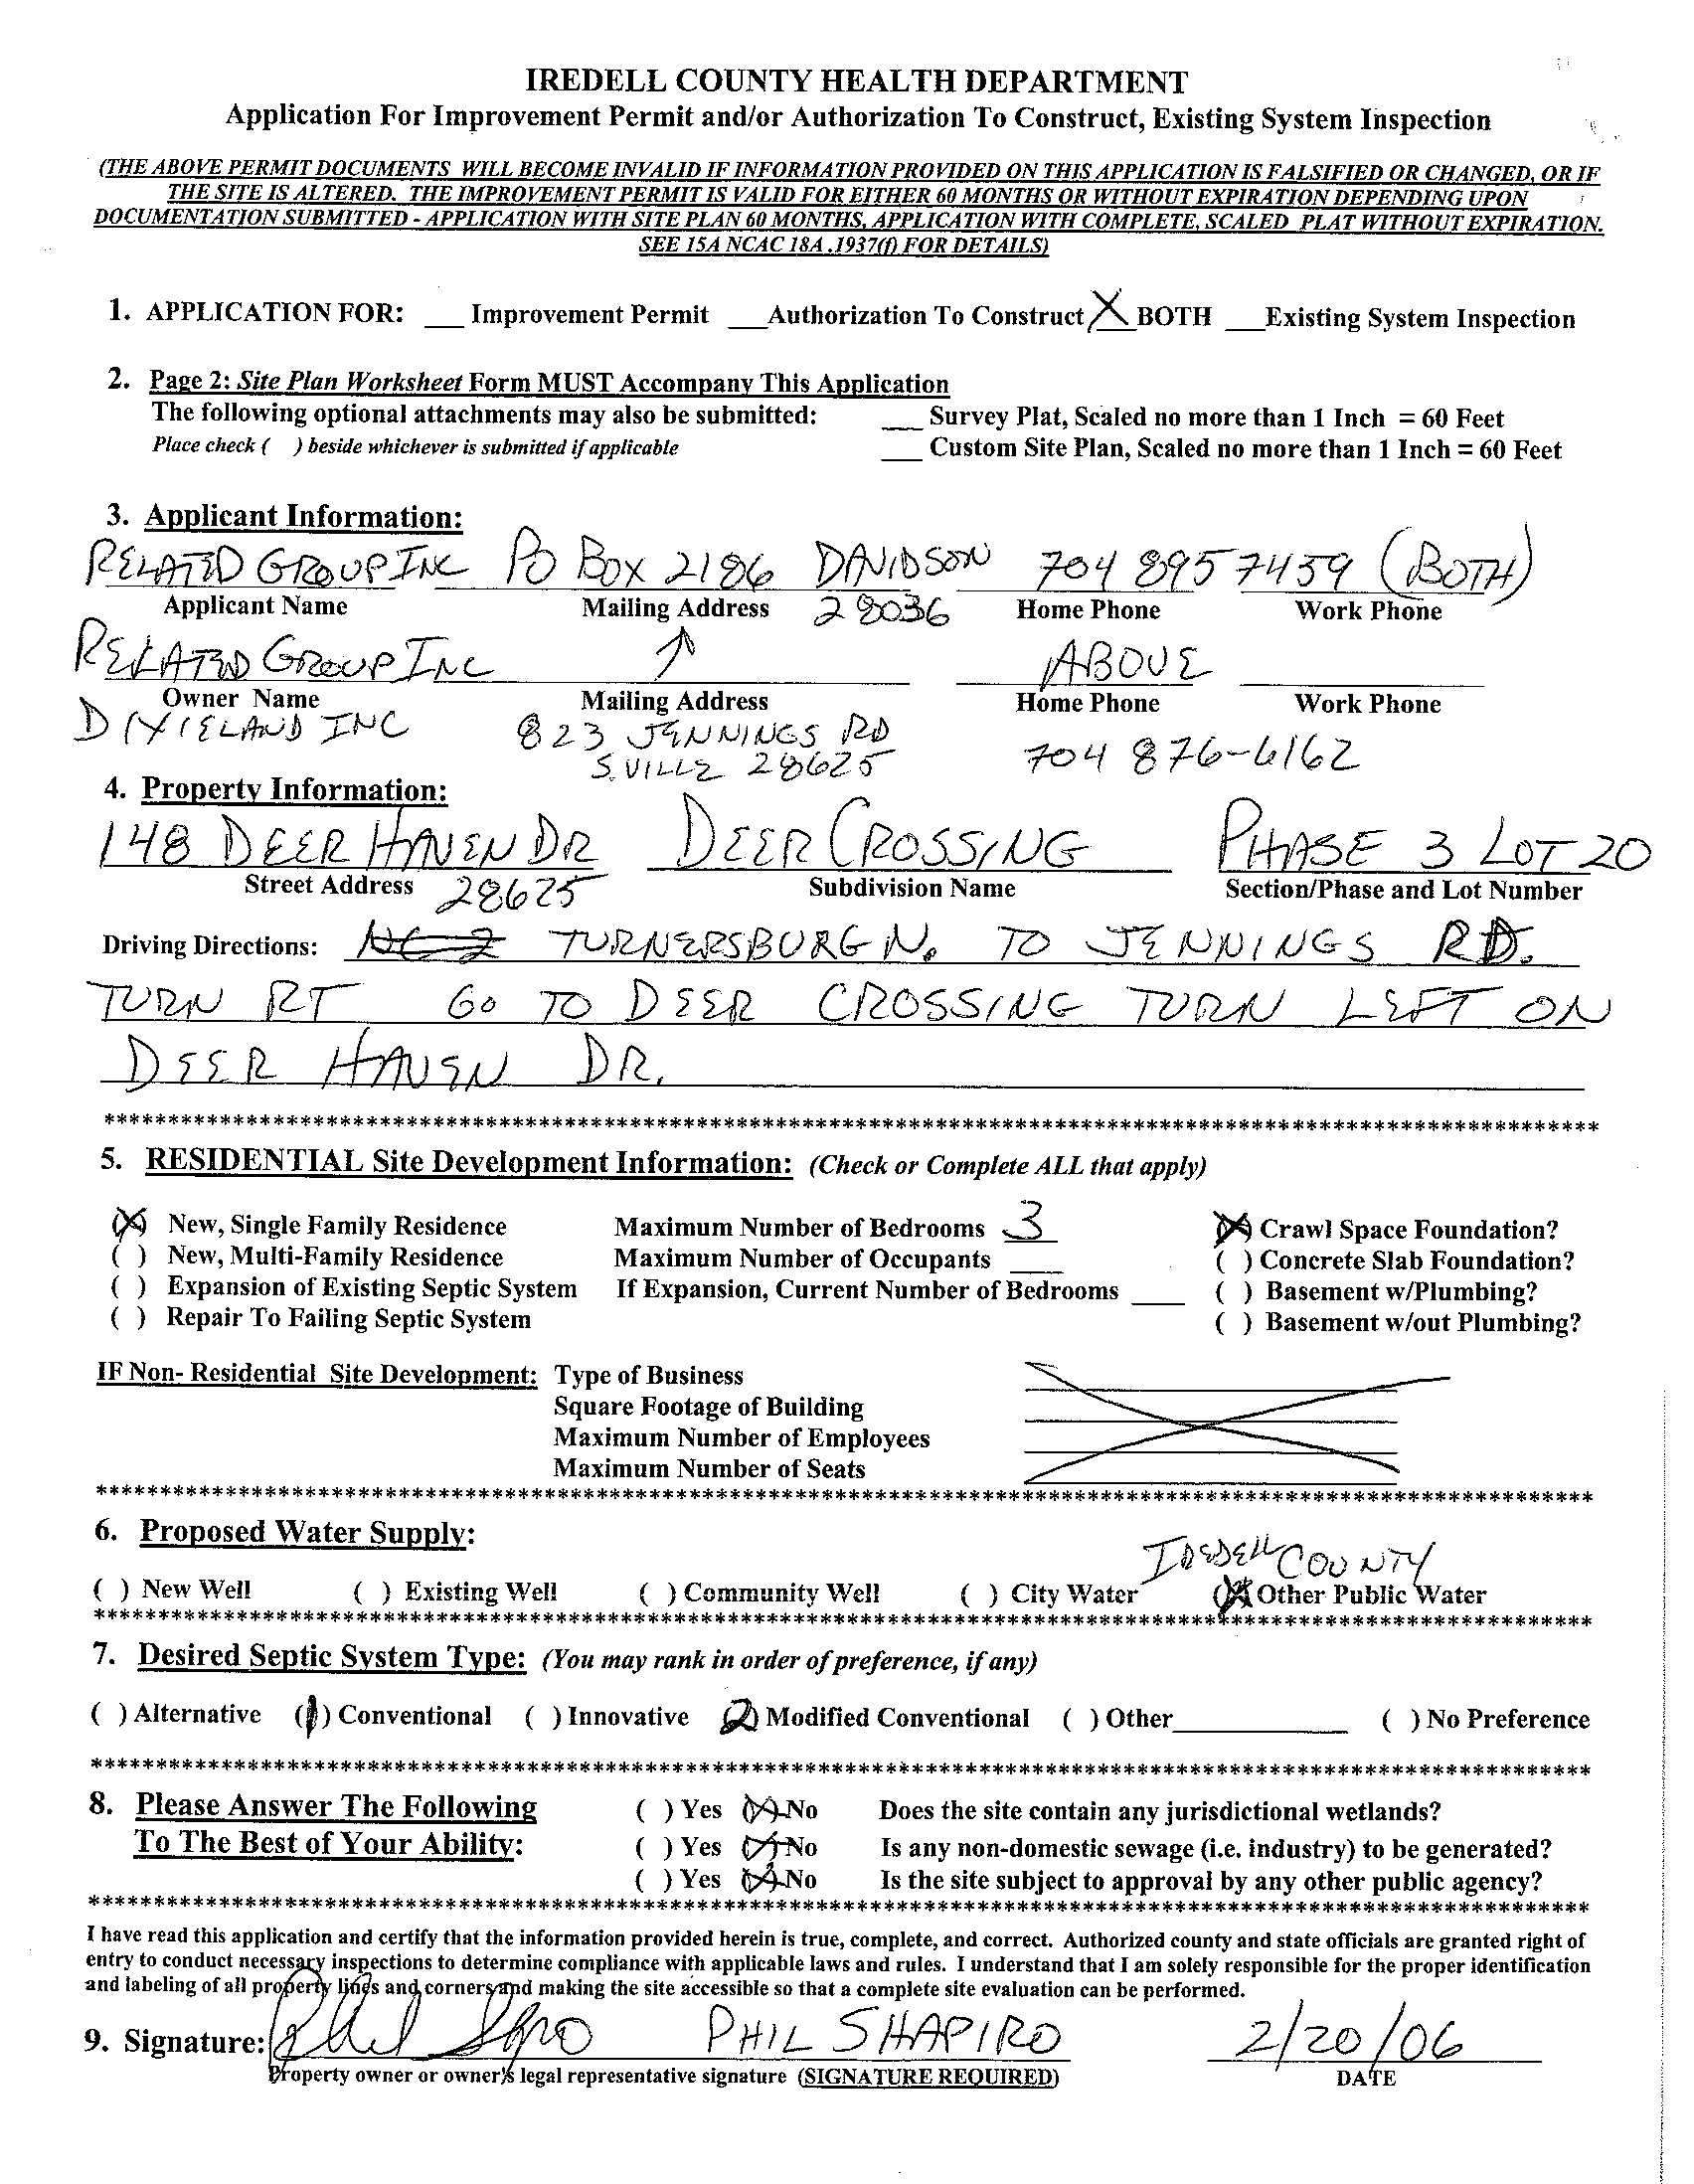 IREDELL COUNTY HEALTH DEPARTMENT
Application For Improvement Permit and/or Authorization To Construct, Existing System Inspection
(THE ABOVE PERMIT DOCUMENTS WILL BECOME INVALID IF INFORMATION PROVIDED ON THIS APPLICATION IS FALSIFIED OR CHANGED, OR IF
THE SITE IS ALTERED. THE IMPROVEMENT PERMIT IS VALID FOR EITHER 60 MONTHS OR WITHOUT EXPIRATION DEPENDING UPON
DOCUMENTATION SUBMITTED - APPLICATION WITH SITE PLAN 60 MONTHS, APPLICATION WITH COMPLETE, SCALED PLAT WITHOUT EXPIRATION.
SEE 15A NCAC 18A .1937(f) FOR DETAILS)
1. APPLICATION FOR: ___ Improvement Permit ___Authorization To Construct X BOTH ___Existing System Inspection
2. Page 2: Site Plan Worksheet Form MUST Accompany This Application
The following optional attachments may also be submitted: ___ Survey Plat, Scaled no more than 1 Inch = 60 Feet
Place check ( ) beside whichever is submitted if applicable ___ Custom Site Plan, Scaled no more than 1 Inch = 60 Feet
3. Applicant Information:
RELATED GROUP INC PO BOX 2186 DAVIDSON 704 895 7459 (BOTH)
Applicant Name Mailing Address 28036 Home Phone Work Phone
RELATED GROUP INC ↑ ABOVE
Owner Name Mailing Address Home Phone Work Phone
DIXIELAND INC 823 JENNINGS RD 704 876-6162
S.VILLE 28625
4. Property Information:
148 DEER HAVEN DR DEER CROSSING PHASE 3 LOT 20
Street Address 28625 Subdivision Name Section/Phase and Lot Number
Driving Directions: TURNERSBURG N. TO JENNINGS RD.
TURN RT GO TO DEER CROSSING TURN LEFT ON
DEER HAVEN DR.
****************************************
5. RESIDENTIAL Site Development Information: (Check or Complete ALL that apply)
(X) New, Single Family Residence Maximum Number of Bedrooms 3 (X) Crawl Space Foundation?
( ) New, Multi-Family Residence Maximum Number of Occupants ____ ( ) Concrete Slab Foundation?
( ) Expansion of Existing Septic System If Expansion, Current Number of Bedrooms ____ ( ) Basement w/Plumbing?
( ) Repair To Failing Septic System ( ) Basement w/out Plumbing?
IF Non- Residential Site Development: Type of Business
Square Footage of Building
Maximum Number of Employees
Maximum Number of Seats
****************************************
6. Proposed Water Supply:
IREDELL COUNTY
( ) New Well ( ) Existing Well ( ) Community Well ( ) City Water (X) Other Public Water
****************************************
7. Desired Septic System Type: (You may rank in order of preference, if any)
( ) Alternative (1) Conventional ( ) Innovative (2) Modified Conventional ( ) Other____________ ( ) No Preference
****************************************
8. Please Answer The Following ( ) Yes (X) No Does the site contain any jurisdictional wetlands?
To The Best of Your Ability: ( ) Yes (X) No Is any non-domestic sewage (i.e. industry) to be generated?
( ) Yes (X) No Is the site subject to approval by any other public agency?
****************************************
I have read this application and certify that the information provided herein is true, complete, and correct. Authorized county and state officials are granted right of
entry to conduct necessary inspections to determine compliance with applicable laws and rules. I understand that I am solely responsible for the proper identification
and labeling of all property lines and corners and making the site accessible so that a complete site evaluation can be performed.
9. Signature: Phil Shapiro PHIL SHAPIRO 2/20/06
Property owner or owner's legal representative signature (SIGNATURE REQUIRED) DATE